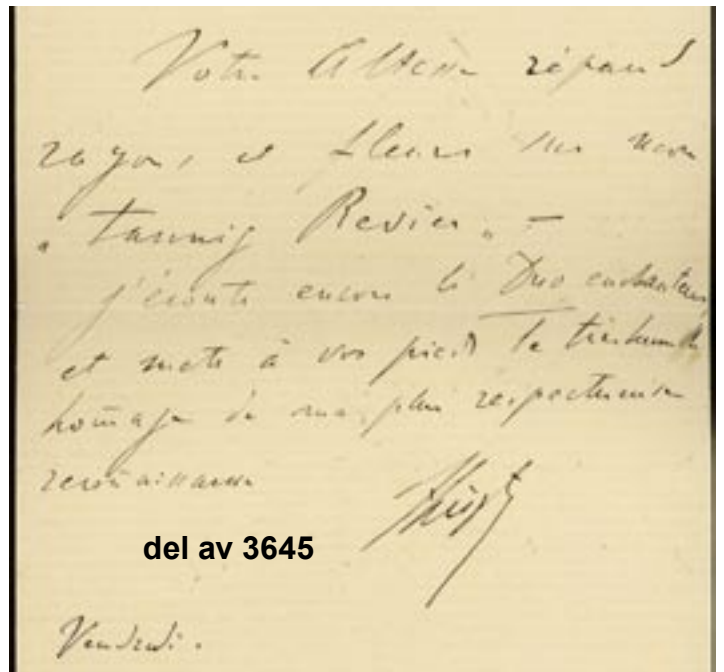 Votre Altesse répand
rayons et fleurs sur mon
"tannig Revier" –
j'écoute encore le Duo enchanteur,
et mets à vos pieds le très humble
homage de ma plus respectueuse
reconnaissance
FLiszt
del av 3645
Vendredi.